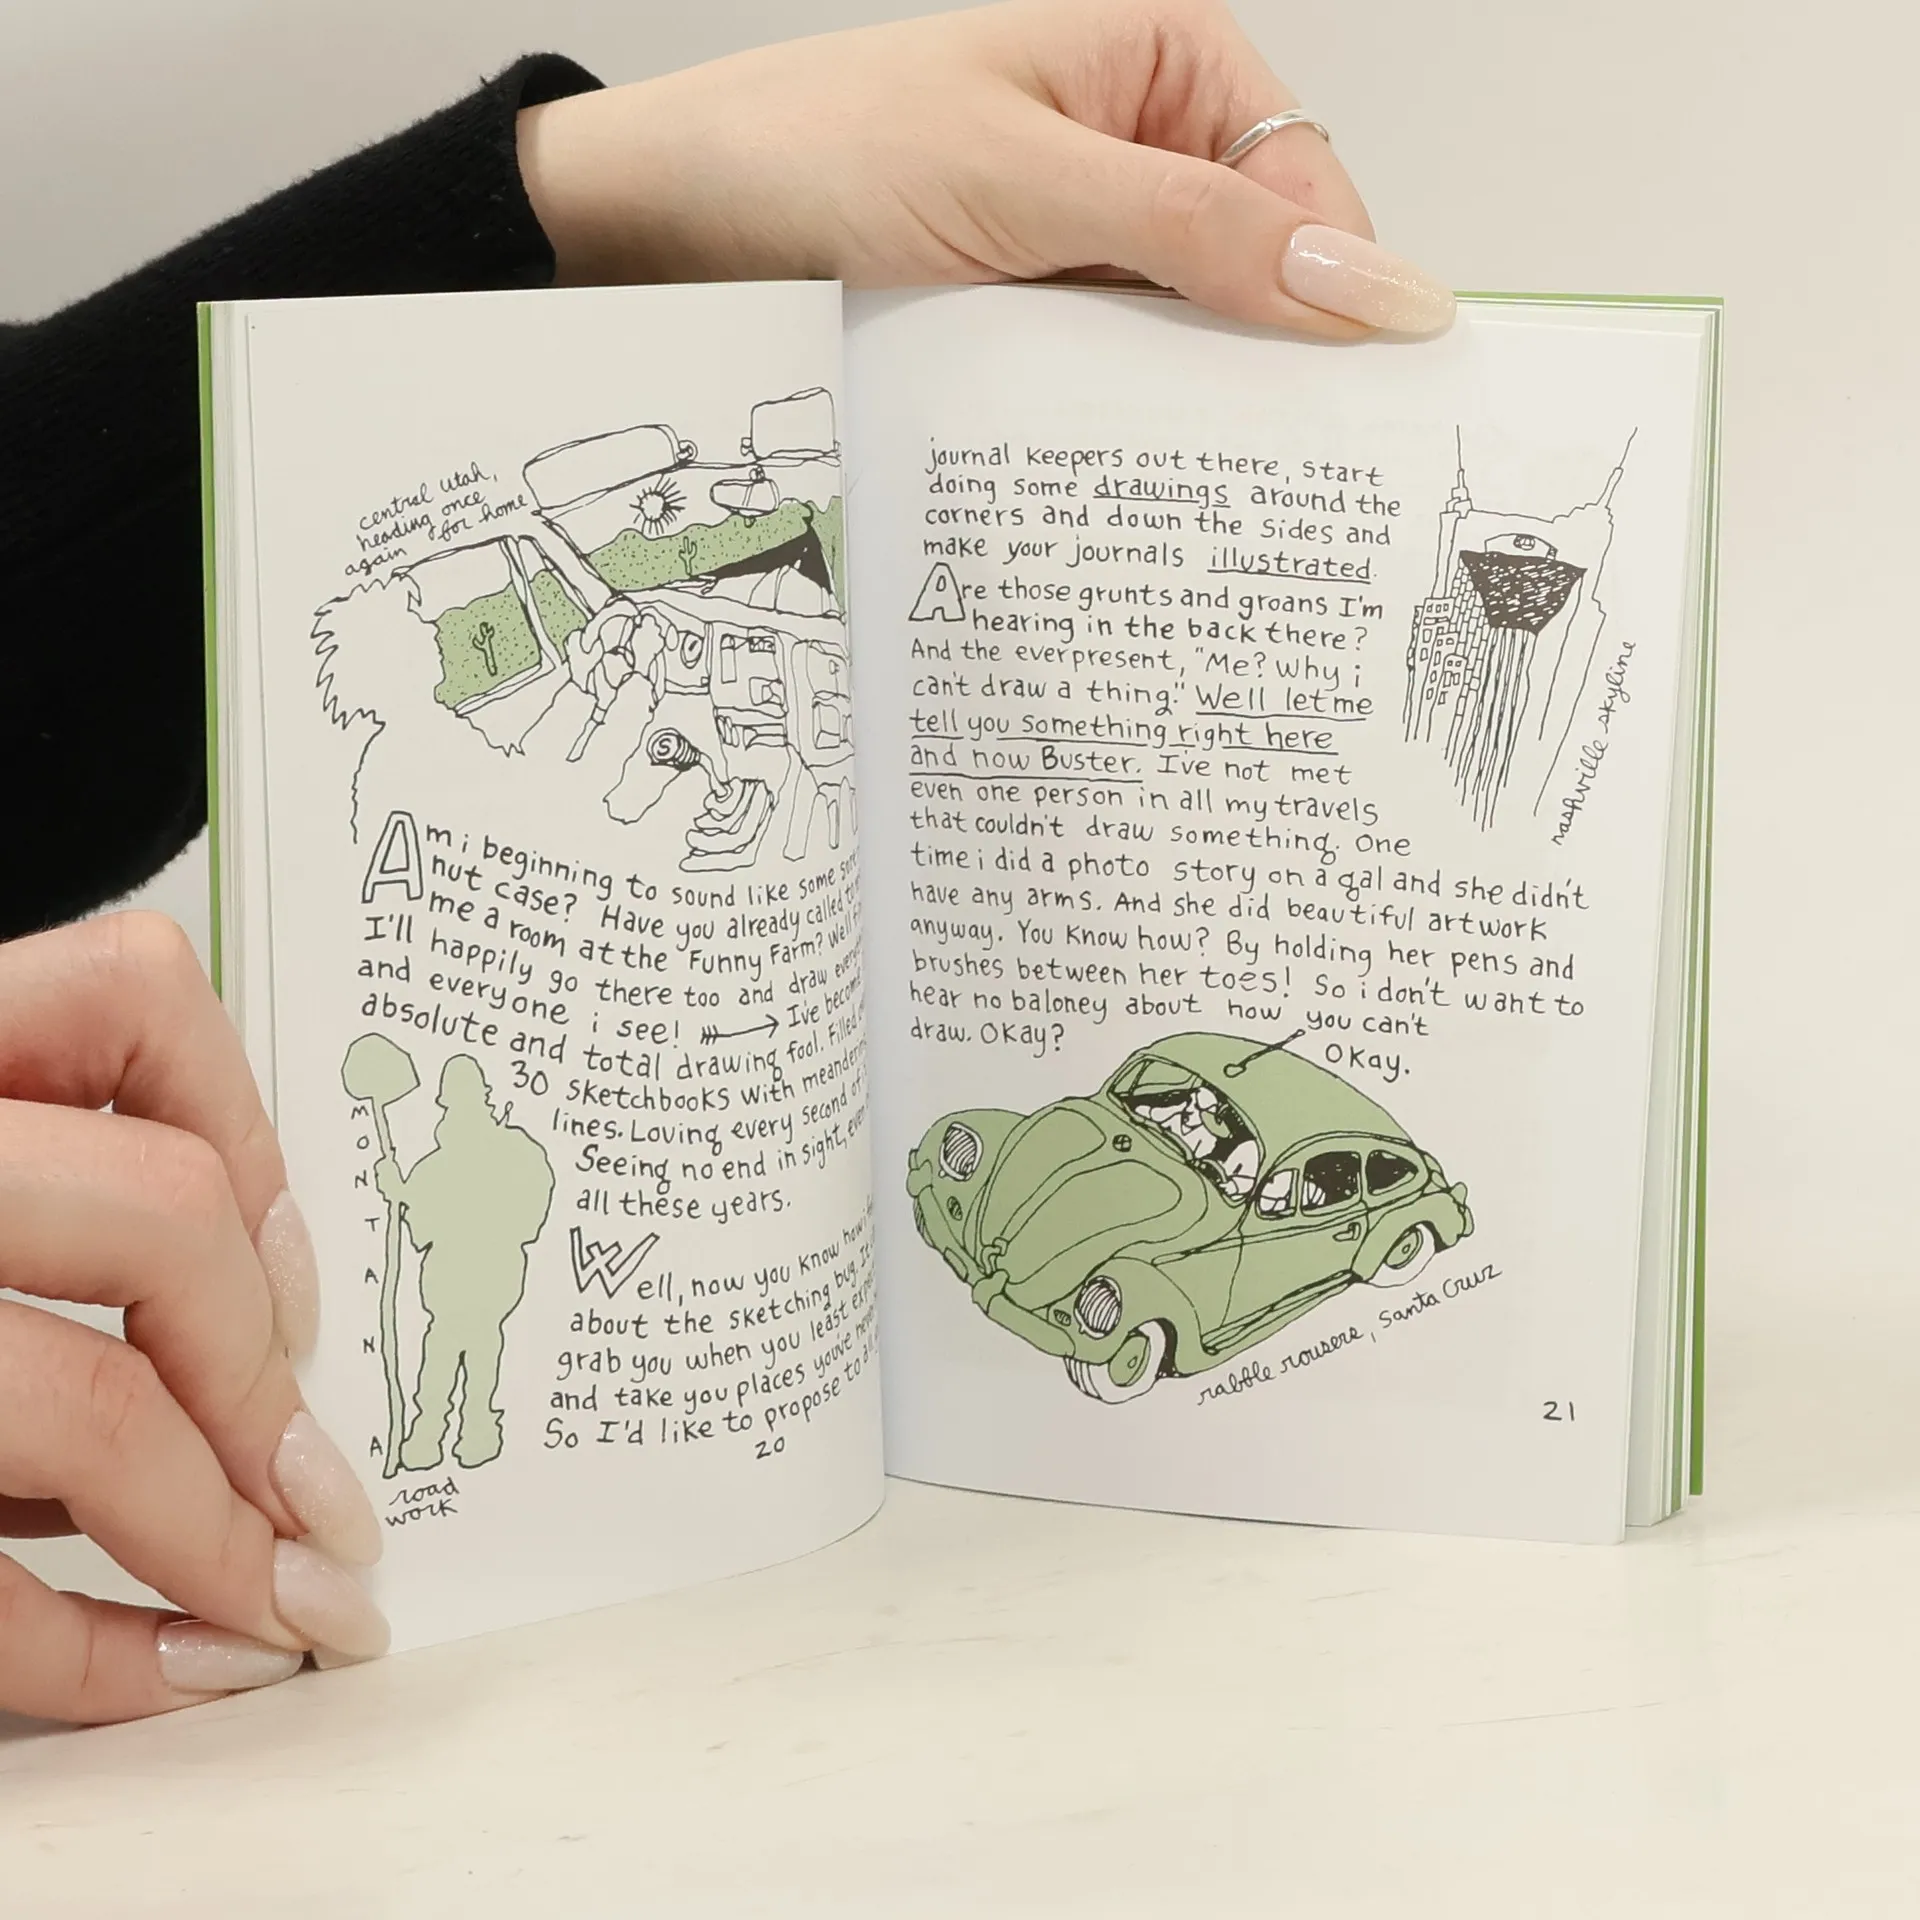 central utah,
heading once
again for home
S
Am i beginning to sound like some
nut case? Have you already called to
me a room at the "Funny Farm? Well
I'll happily go there too and draw
and everyone i see! I've become
absolute and total drawing fool. Filled
30 sketchbooks with meandering
lines. Loving every second of
Seeing no end in sight, even
all these years.
Well, now you know how i
about the sketching bug. It
grab you when you least
and take you places you've never
So I'd like to propose to all
20
MONTANA
road
work
journal keepers out there, start
doing some drawings around the
corners and down the sides and
make your journals illustrated.
Are those grunts and groans I'm
hearing in the back there?
And the everpresent, "Me? Why i
can't draw a thing." Well let me
tell you something right here
and now Buster. I've not met
even one person in all my travels
that couldn't draw something. One
time i did a photo story on a gal and she didn't
have any arms. And she did beautiful artwork
anyway. You know how? By holding her pens and
brushes between her toes! So i don't want to
hear no baloney about how you can't
draw. Okay?
Okay.
nashville skyline
rabble rousers, Santa Cruz
21